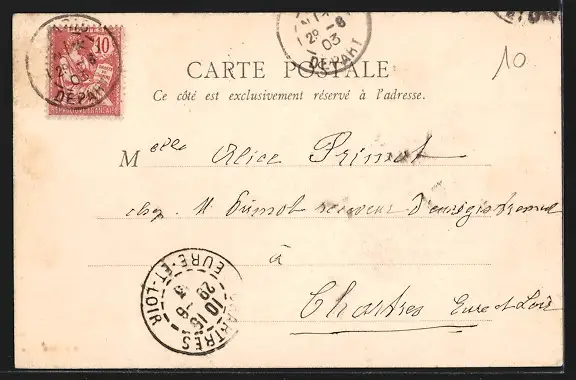 10
RÉPUBLIQUE FRANÇAISE
DÉPART
12e -6
03
DÉPART
10
CARTE POSTALE
Ce côté est exclusivement réservé à l'adresse.
Melle Alice Primot
chez M Primot receveur d'enregistrement
à
Chartres Eure et Loir
CHARTRES
10 15
29 -6
EURE-ET-LOIR